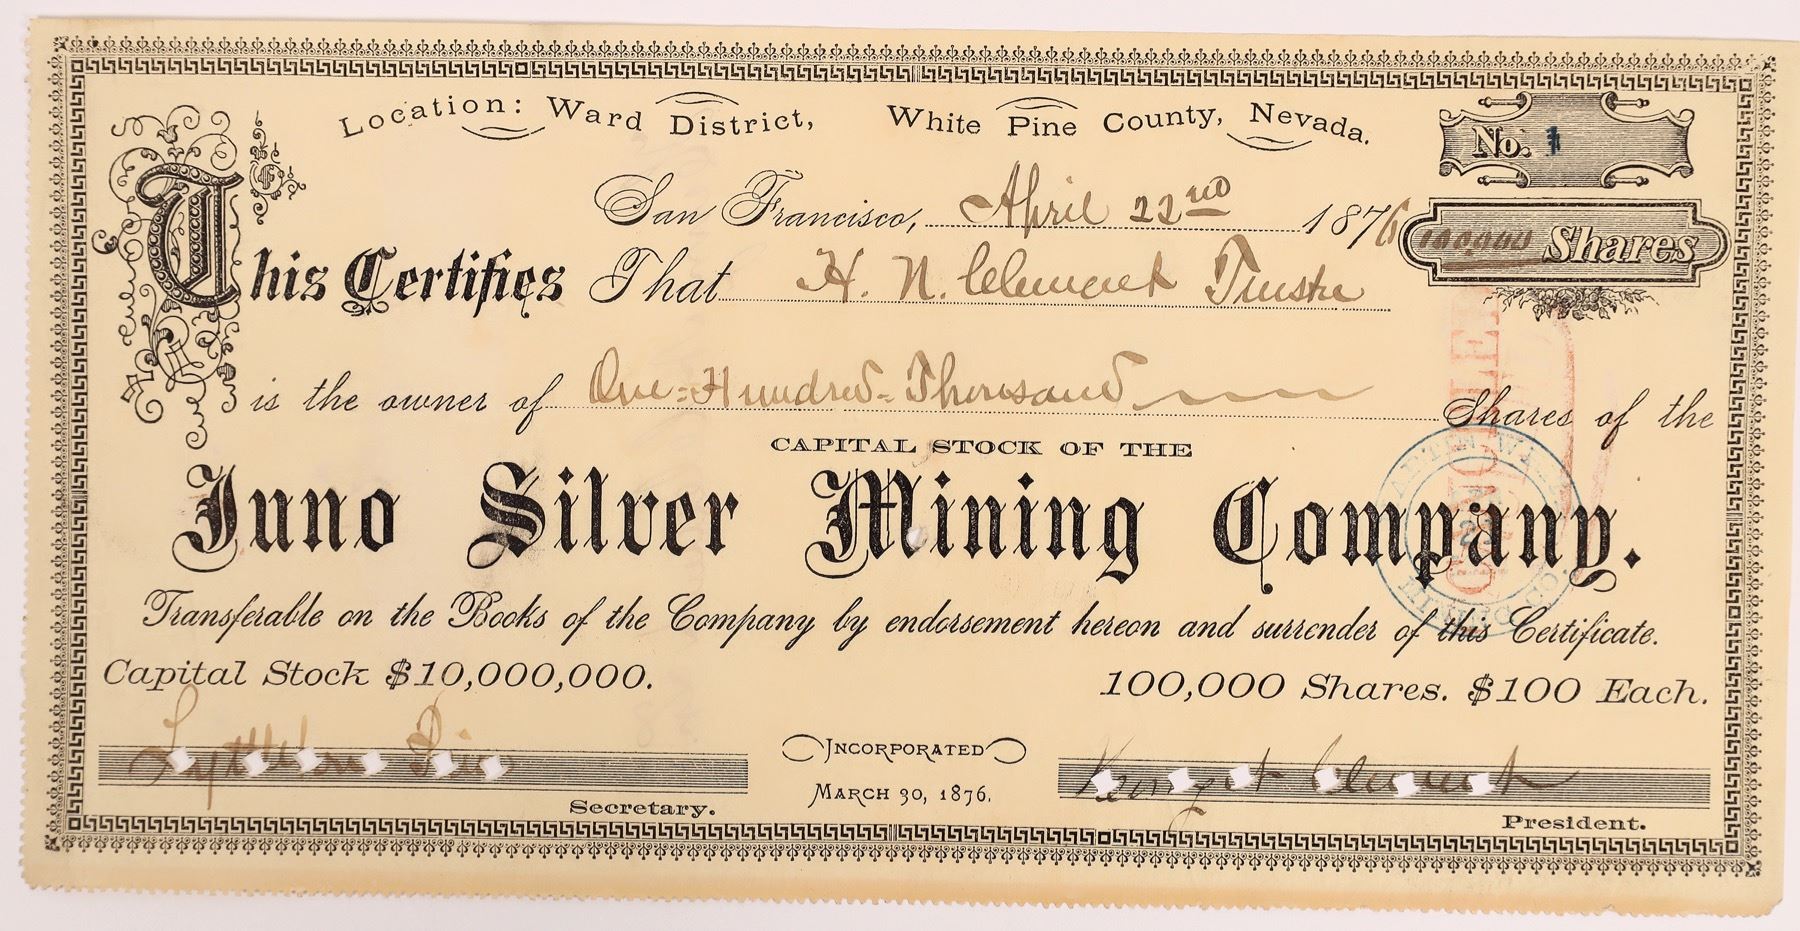 Location: Ward District, White Pine County, Nevada.
No. 1
San Francisco, April 22nd 1876
100000 Shares
This Certifies That H. N. Clement Trustee
is the owner of One=Hundred=Thousand Shares of the
CAPITAL STOCK OF THE
Juno Silver Mining Company.
Transferable on the Books of the Company by endorsement hereon and surrender of this Certificate.
Capital Stock $10,000,000. 100,000 Shares. $100 Each.
INCORPORATED
MARCH 30, 1876.
Secretary.
Clement
President.
CANCELLED